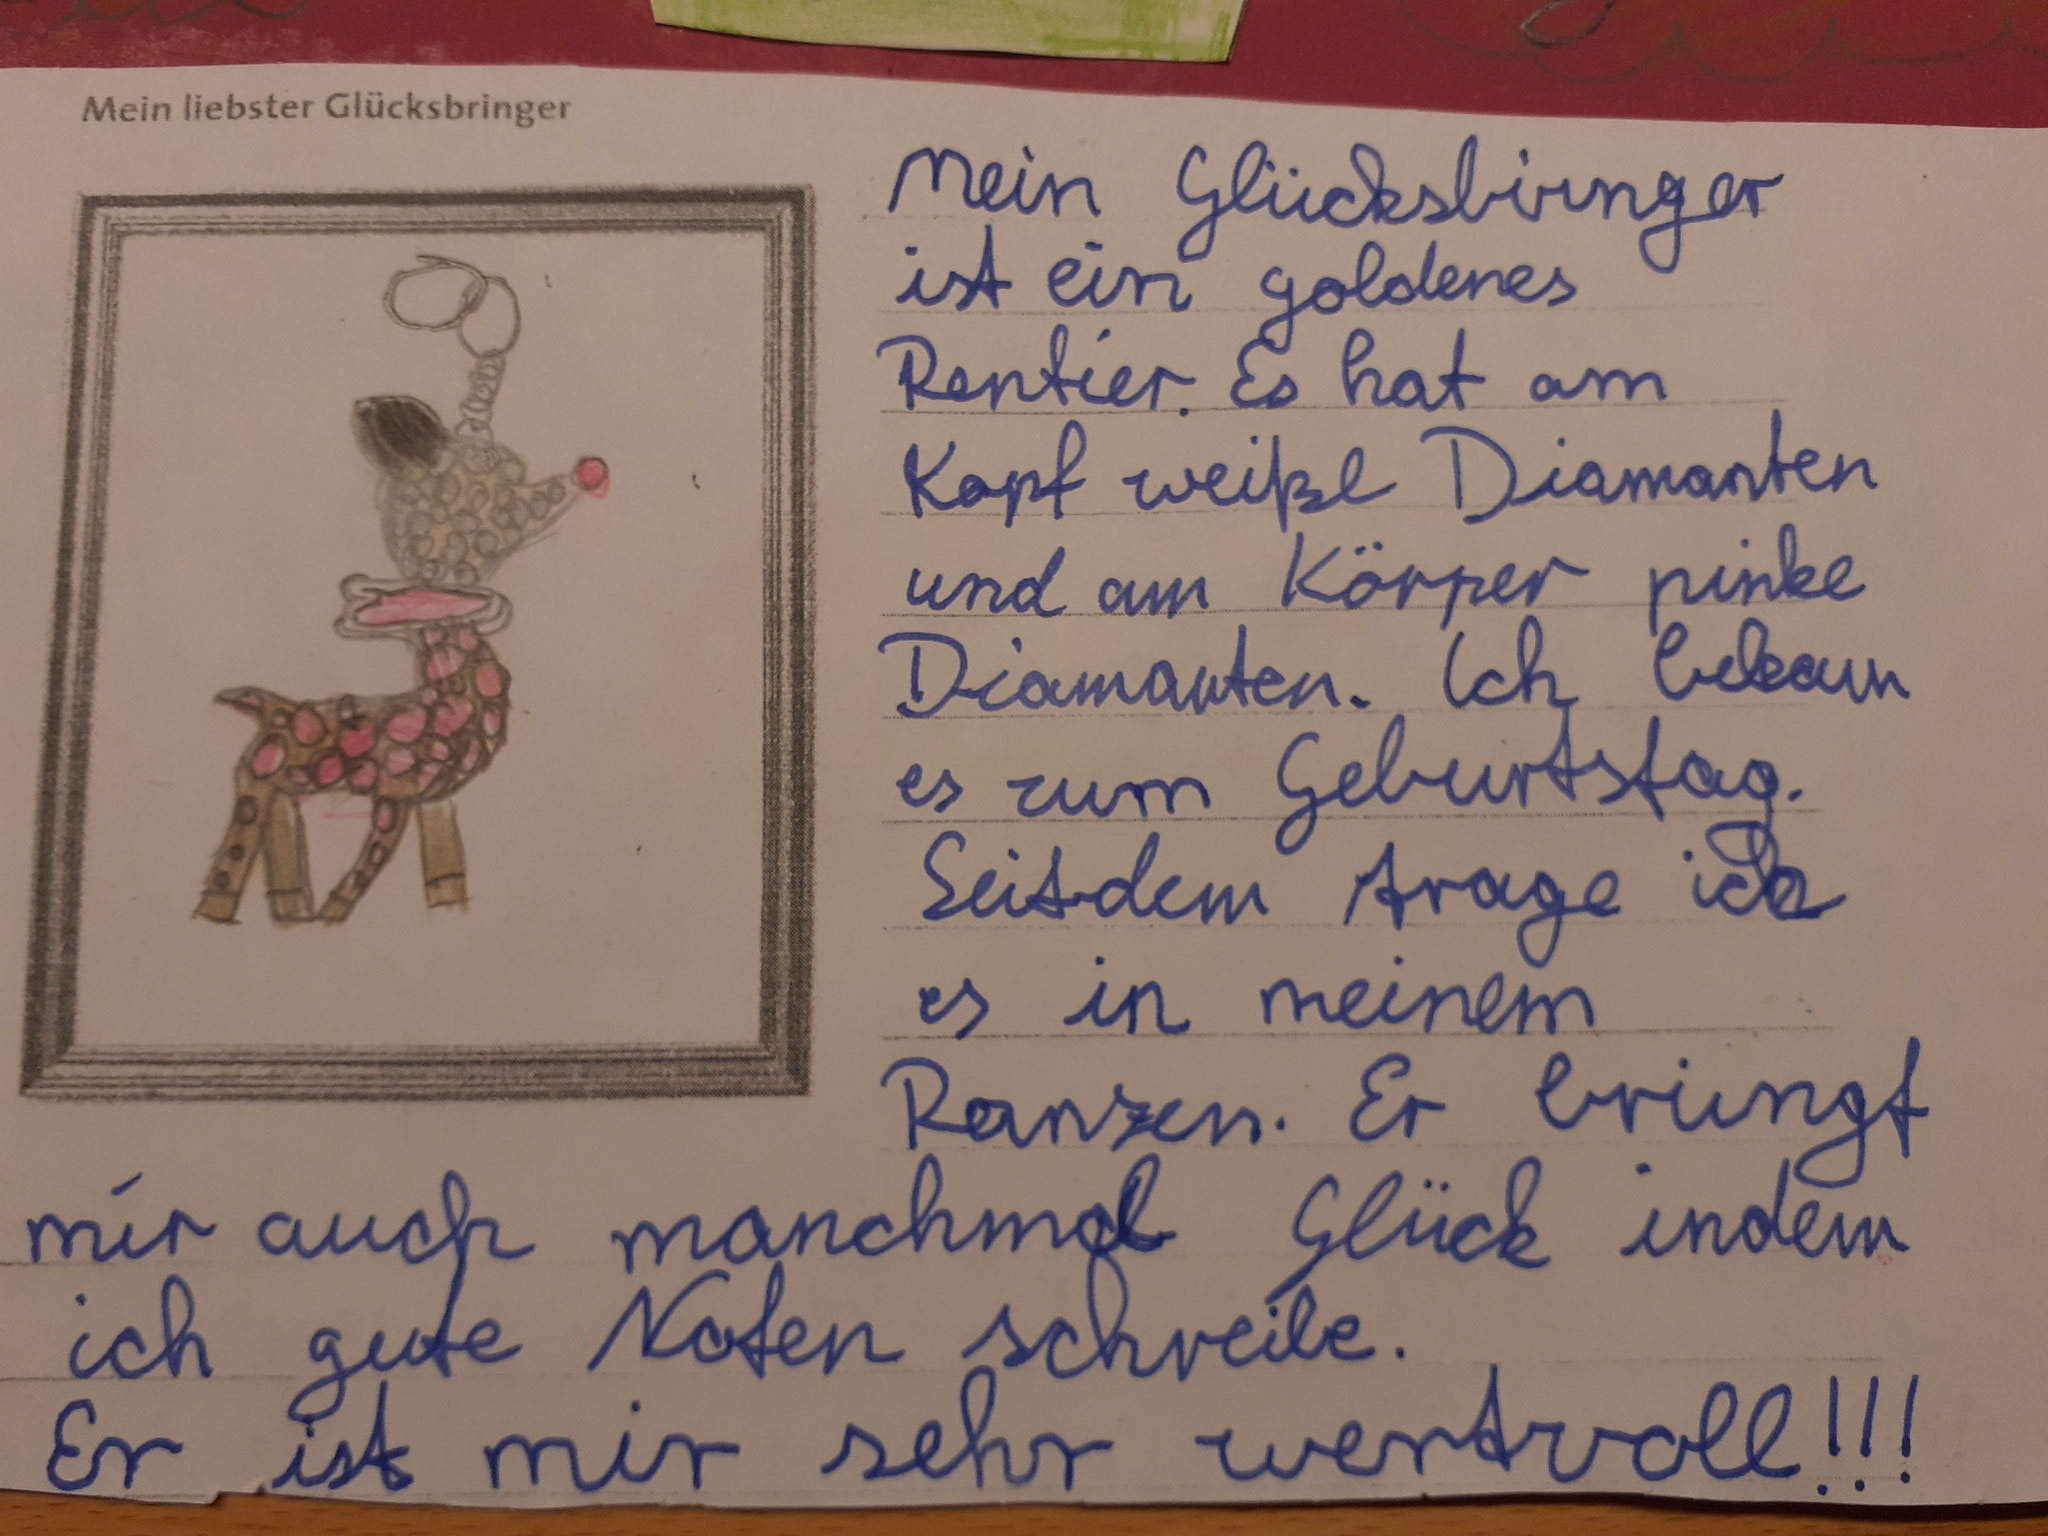 Mein liebster Glücksbringer
Mein Glücksbringer
ist ein goldenes
Rentier. Es hat am
Kopf weiße Diamanten
und am Körper pinke
Diamanten. Ich bekam
es zum Geburtstag.
Seitdem trage ich
es in meinem
Ranzen. Er bringt
mir auch manchmal Glück indem
ich gute Noten schreibe.
Er ist mir sehr wertvoll!!!